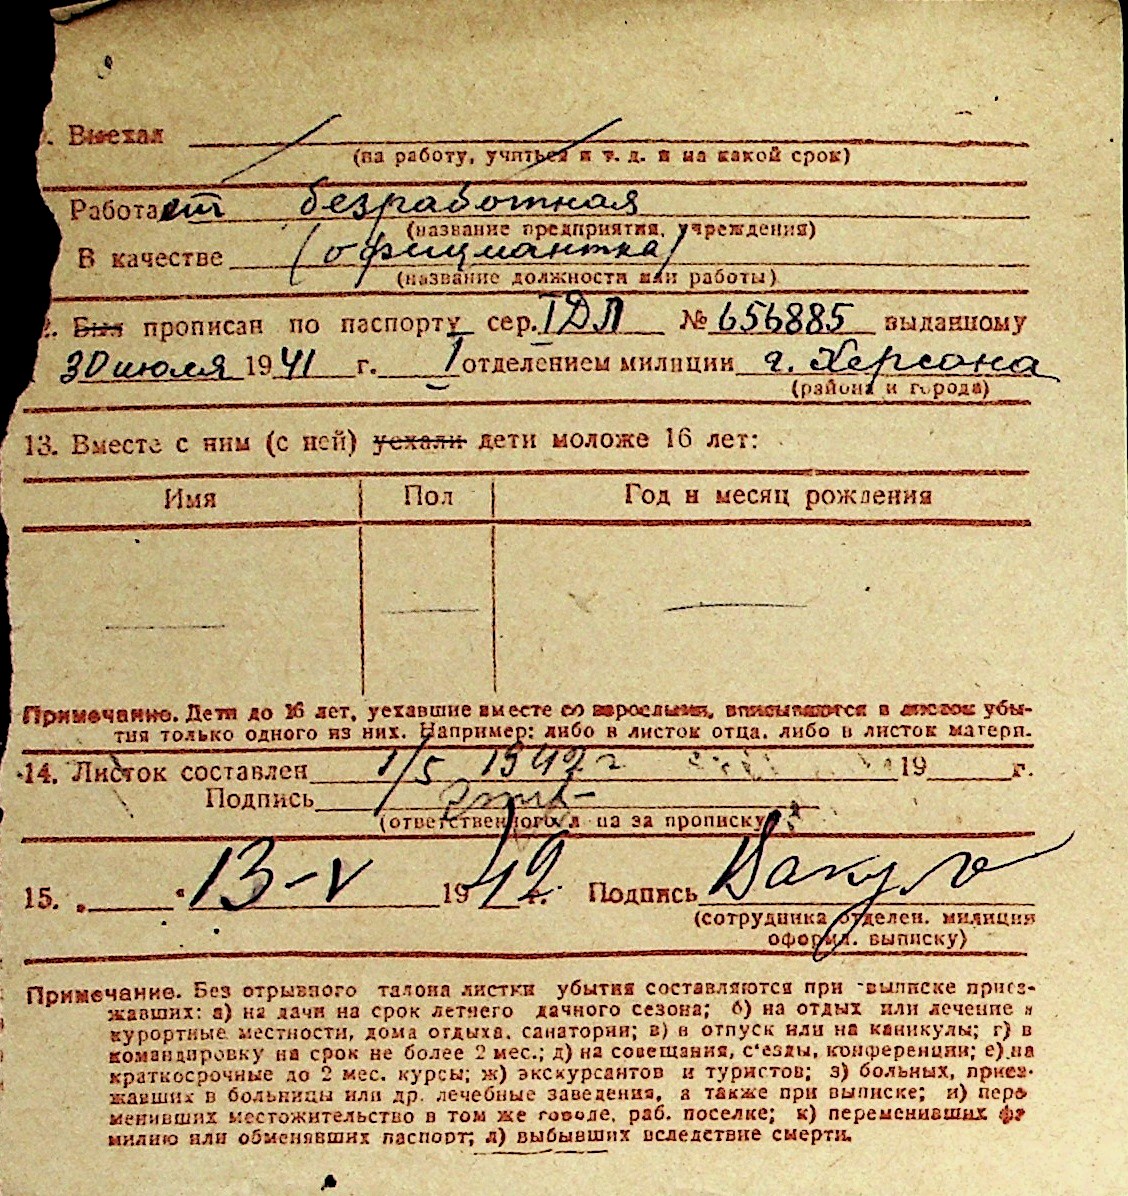 . Выехал
(на работу, учиться и т. д. и на какой срок)
Работает безработная
(название предприятия, учреждения)
В качестве (официантка)
(название должности или работы)
2. Был прописан по паспорту сер. I ДЛ № 656885 выданному
30 июля 1941 г. I отделением милиции г. Херсона
(района и города)
13. Вместе с ним (с ней) уехали дети моложе 16 лет:
Имя Пол Год и месяц рождения
Примечание. Дети до 16 лет, уехавшие вместе со взрослыми, вписываются в листок убы-
тия только одного из них. Например: либо в листок отца, либо в листок матери.
14. Листок составлен 1/5 1942 г 19 г.
Подпись
(ответственного л-ца за прописку)
15. „ “ 13-V 1942 г. Подпись
(сотрудника отделен. милиции
оформ. выписку)
Примечание. Без отрывного талона листки убытия составляются при выписке приез-
жавших: а) на дачи на срок летнего дачного сезона; б) на отдых или лечение в
курортные местности, дома отдыха, санатории; в) в отпуск или на каникулы; г) в
командировку на срок не более 2 мес.; д) на совещания, с'езды, конференции; е) на
краткосрочные до 2 мес. курсы; ж) экскурсантов и туристов; з) больных, приез-
жавших в больницы или др. лечебные заведения, а также при выписке; и) пере
менивших местожительство в том же городе, раб. поселке; к) переменивших фа
милию или обменявших паспорт; л) выбывших вследствие смерти.